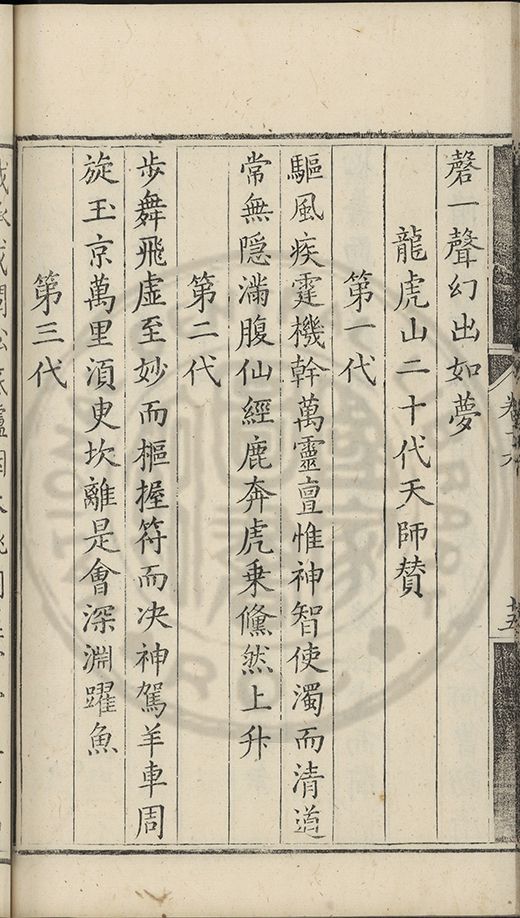 磬一聲幻出如夢
龍虎山二十代天師賛
第一代
驅風疾霆機幹萬靈亶惟神智使濁而清道
常無隠滿腹仙經鹿奔虎乗儵然上升
第二代
步舞飛虛至妙而樞握符而决神駕羊車周
旋玉京萬里湏臾坎離是會深淵躍魚
第三代